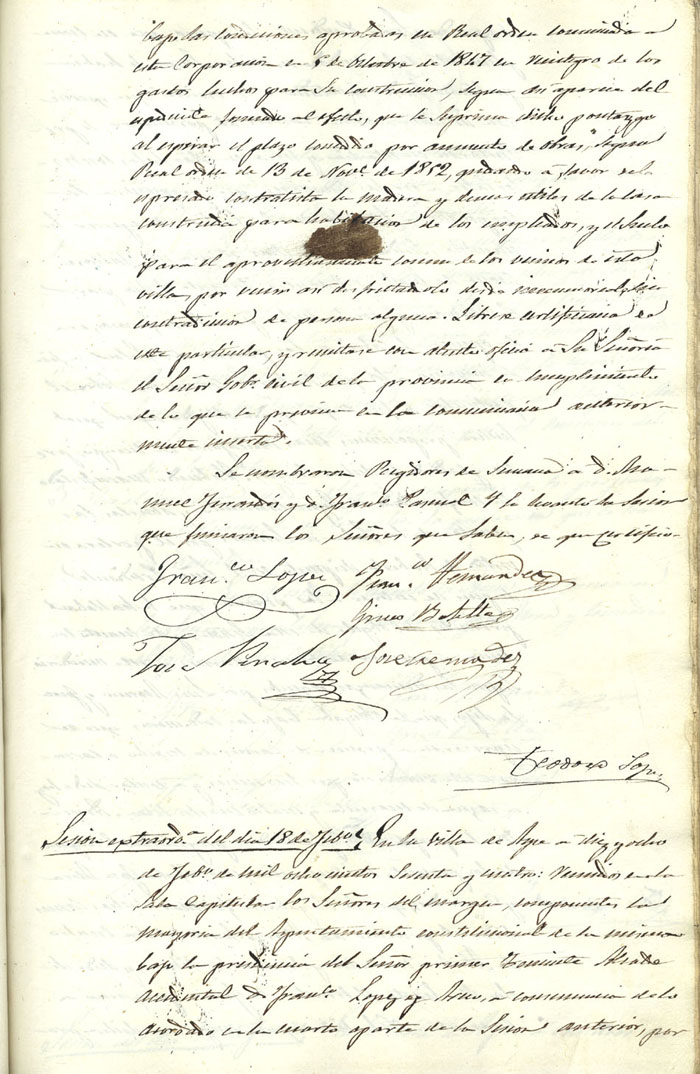 bajo las condiciones aprobadas en Real orden comunicada a
esta Corporacion en 5 de Octubre de 1847 en reintegro de los
gastos hechos para su construccion, segun asi aparecia del
espediente formado al efecto, que se suprima dicho pontazgo
al espirar el plazo concedido por aumento de obras, segun
Real orden de 13 de Nove. de 1852, quedando á favor de la
espresada contratista la madera y demas utiles de la casa
construida para habitacion de los empleados, y el suelo
para el aprovechamiento comun de los vecinos de esta
villa, por venir asi disfrutandolo desde inmemorial sin
contradiccion de persona alguna. Librese certificacion de
este particular, y remitase con atento oficio á Su Señoria
el Señor Gobr. civil de la provincia en cumplimiento
de lo que se previene en la comunicacion anterior-
mente inserta.
Se nombraron Regidores de Semana á D. Ma-
nuel y D. Franco. Pascual y se levantó la sesion
que firmaron los Señores que saben, de que certifico.
Franco. Lopez Franco. Hernandez
Gines Botella
Jose
Teodoro Lopez
Sesion extraorda. del dia 18 de Febo. En la villa de Aspe á diez y ocho
de Febo. de mil ochocientos sesenta y cuatro: reunidos en la
Sala Capitular los Señores del margen, componentes la
mayoria del Ayuntamiento constitucional de la misma
bajo la presidencia del Señor primer Teniente Alcalde
accidental D. Franco. Lopez y , á consecuencia de lo
acordado en la cuarta aparte de la Sesion anterior, por